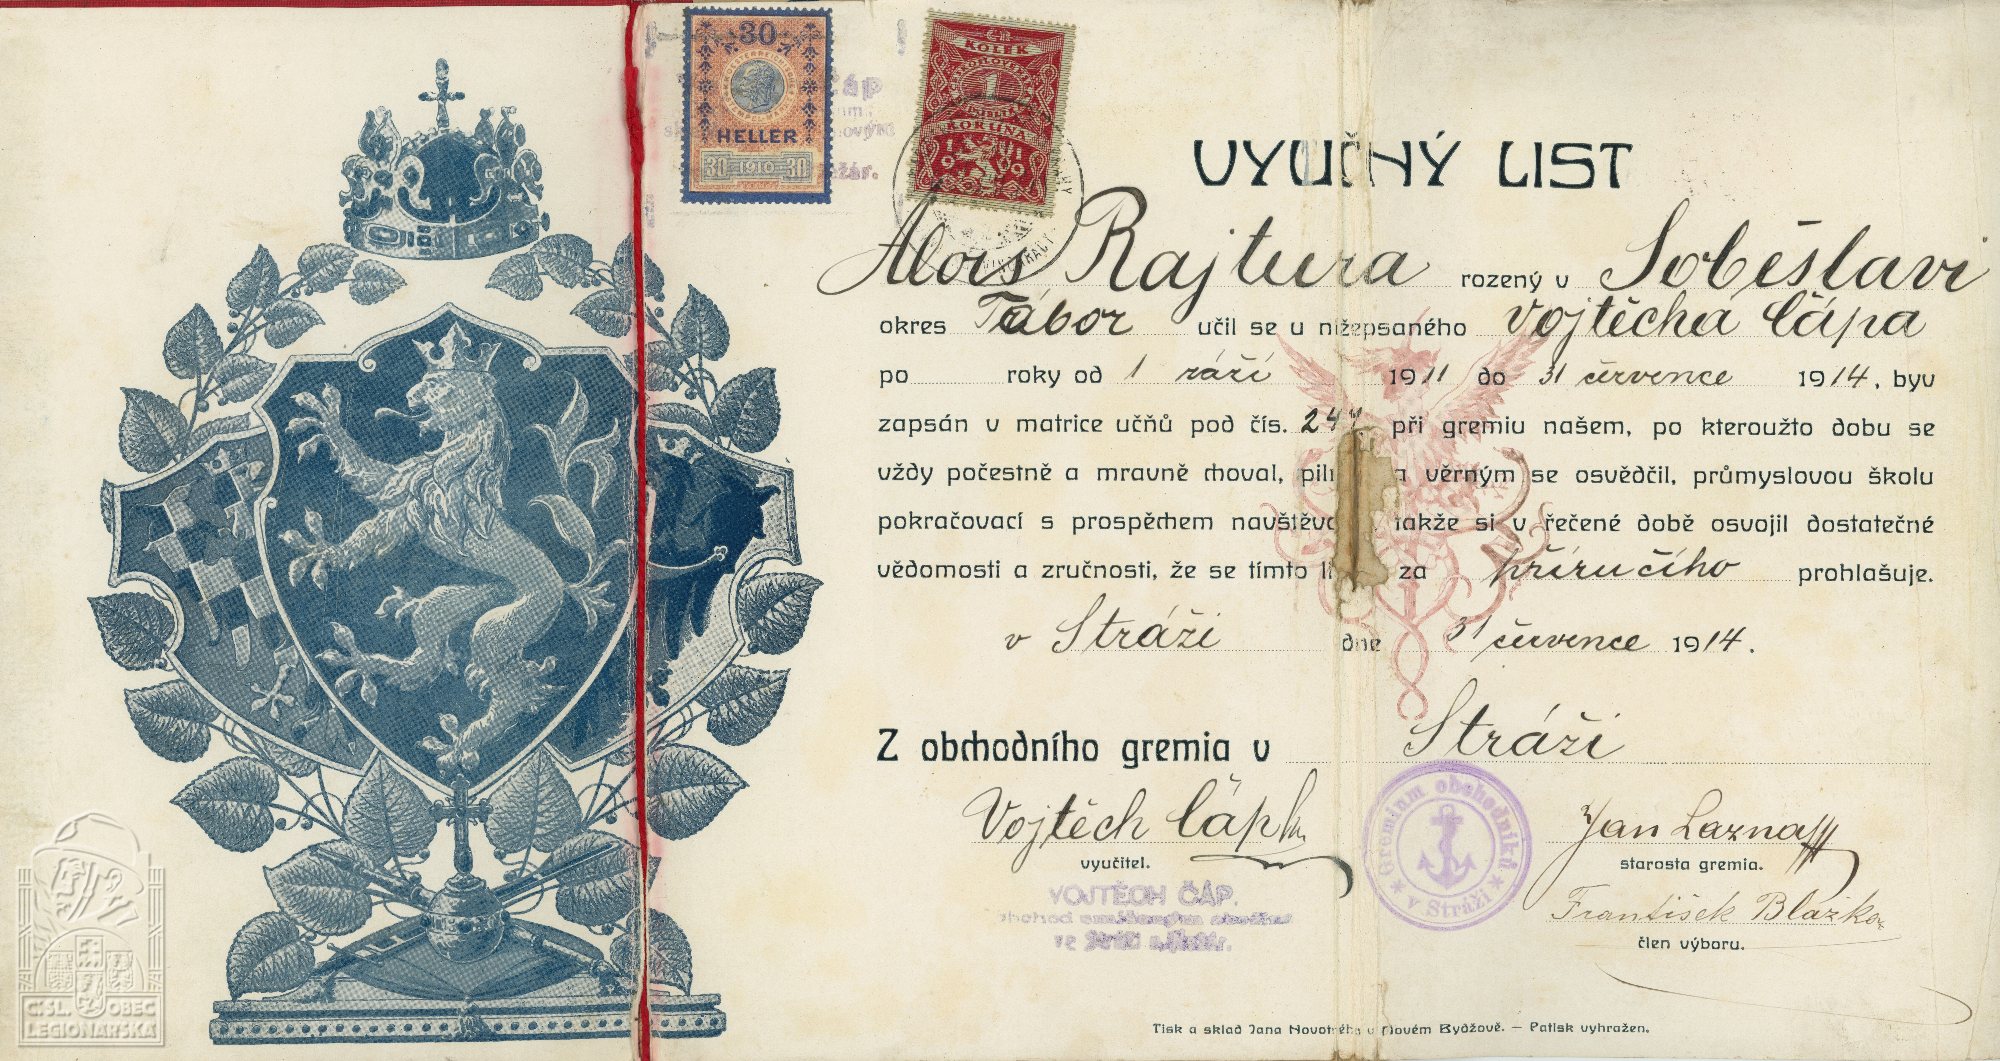 30
HELLER
30 1910 30
KOLEK
1
KORUNA
1919
ČÁP
VYUČNÝ LIST
Alois Rajtura rozený v Soběslavi
okres Tábor učil se u nížepsaného Vojtěcha Čápa
po roky od 1 září 1911 do 31 července 1914, byv
zapsán v matrice učňů pod čís. 244 při gremiu našem, po kteroužto dobu se
vždy počestně a mravně choval, pil a věrným se osvědčil, průmyslovou školu
pokračovací s prospěchem navštěvo takže si v řečené době osvojil dostatečné
vědomosti a zručnosti, že se tímto li za příručího prohlašuje.
v Stráži dne 31 července 1914.
Z obchodního gremia v Stráži
Vojtěch Čáp
vyučitel.
VOJTĚCH ČÁP.
Gremium obchodníků
v Stráži
Jan Laznaff
starosta gremia.
František Blažka
člen výboru.
Tisk a sklad Jana Novotného v Novém Bydžově. – Patisk vyhražen.
ČSL. OBEC
LEGIONÁŘSKÁ